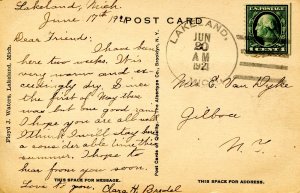 Lakeland, Mich.
June 17th 1921
POST CARD
Dear Friends:
I have been
here two weeks. It is
very warm and ex-
ceedingly dry. Since
the first of May there
but one good rain
I hope you are all well
I think I will stay here
a considerable time this
summer. I hope to
hear from you soon.
Love to you, Clara H.
THIS SPACE FOR MESSAGE.
Floyd J. Waters, Lakeland, Mich.
Post Cards of Quality. The Albertype Co., Brooklyn, N.Y.
LAKELAND,
JUN
20
AM
1921
Miss E. Van Dyke
Gilboa
N. Y.
THIS SPACE FOR ADDRESS.